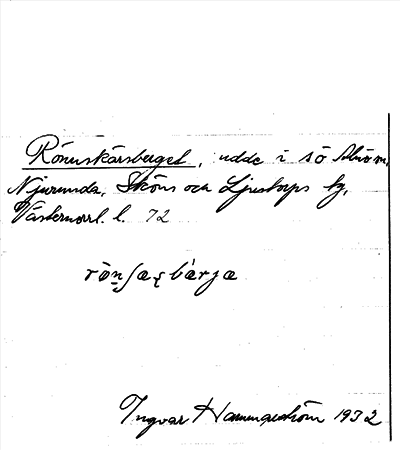 Rönnskärsberget, udde i sö
Njurunda, Sköns och Ljustorps tg,
Västernorrl. l. 72
rȯ̀n̠ʃæʂbærjæ
Ingvar Hammarström 1932